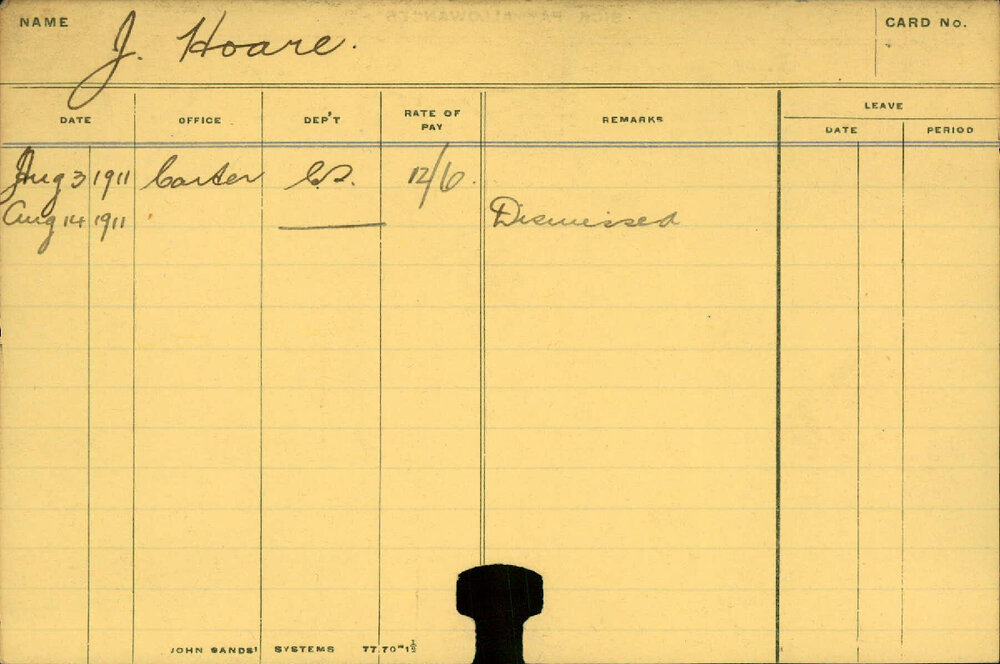 NAME J. Hoare. CARD No.
DATE OFFICE DEP'T RATE OF PAY REMARKS LEAVE
DATE PERIOD
Aug 3 1911 Carter C.S. 12/6.
Aug 14 1911 Dismissed
JOHN SANDS' SYSTEMS 77.70"1½